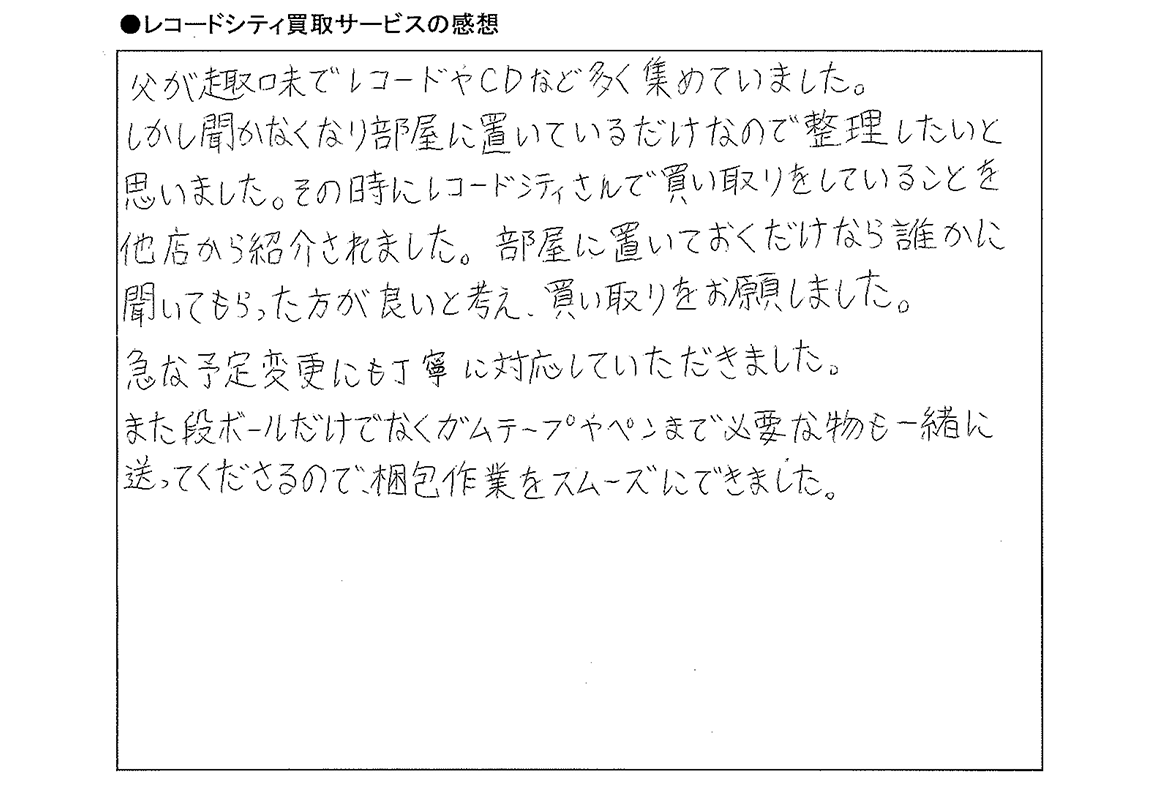 ●レコードシティ買取サービスの感想
父が趣味でレコードやCDなど多く集めていました。
しかし聞かなくなり部屋に置いているだけなので整理したいと
思いました。その時にレコードシティさんで買い取りをしていることを
他店から紹介されました。部屋に置いておくだけなら誰かに
聞いてもらった方が良いと考え、買い取りをお願しました。
急な予定変更にも丁寧に対応していただきました。
また段ボールだけでなくガムテープやペンまで必要な物も一緒に
送ってくださるので、梱包作業をスムーズにできました。